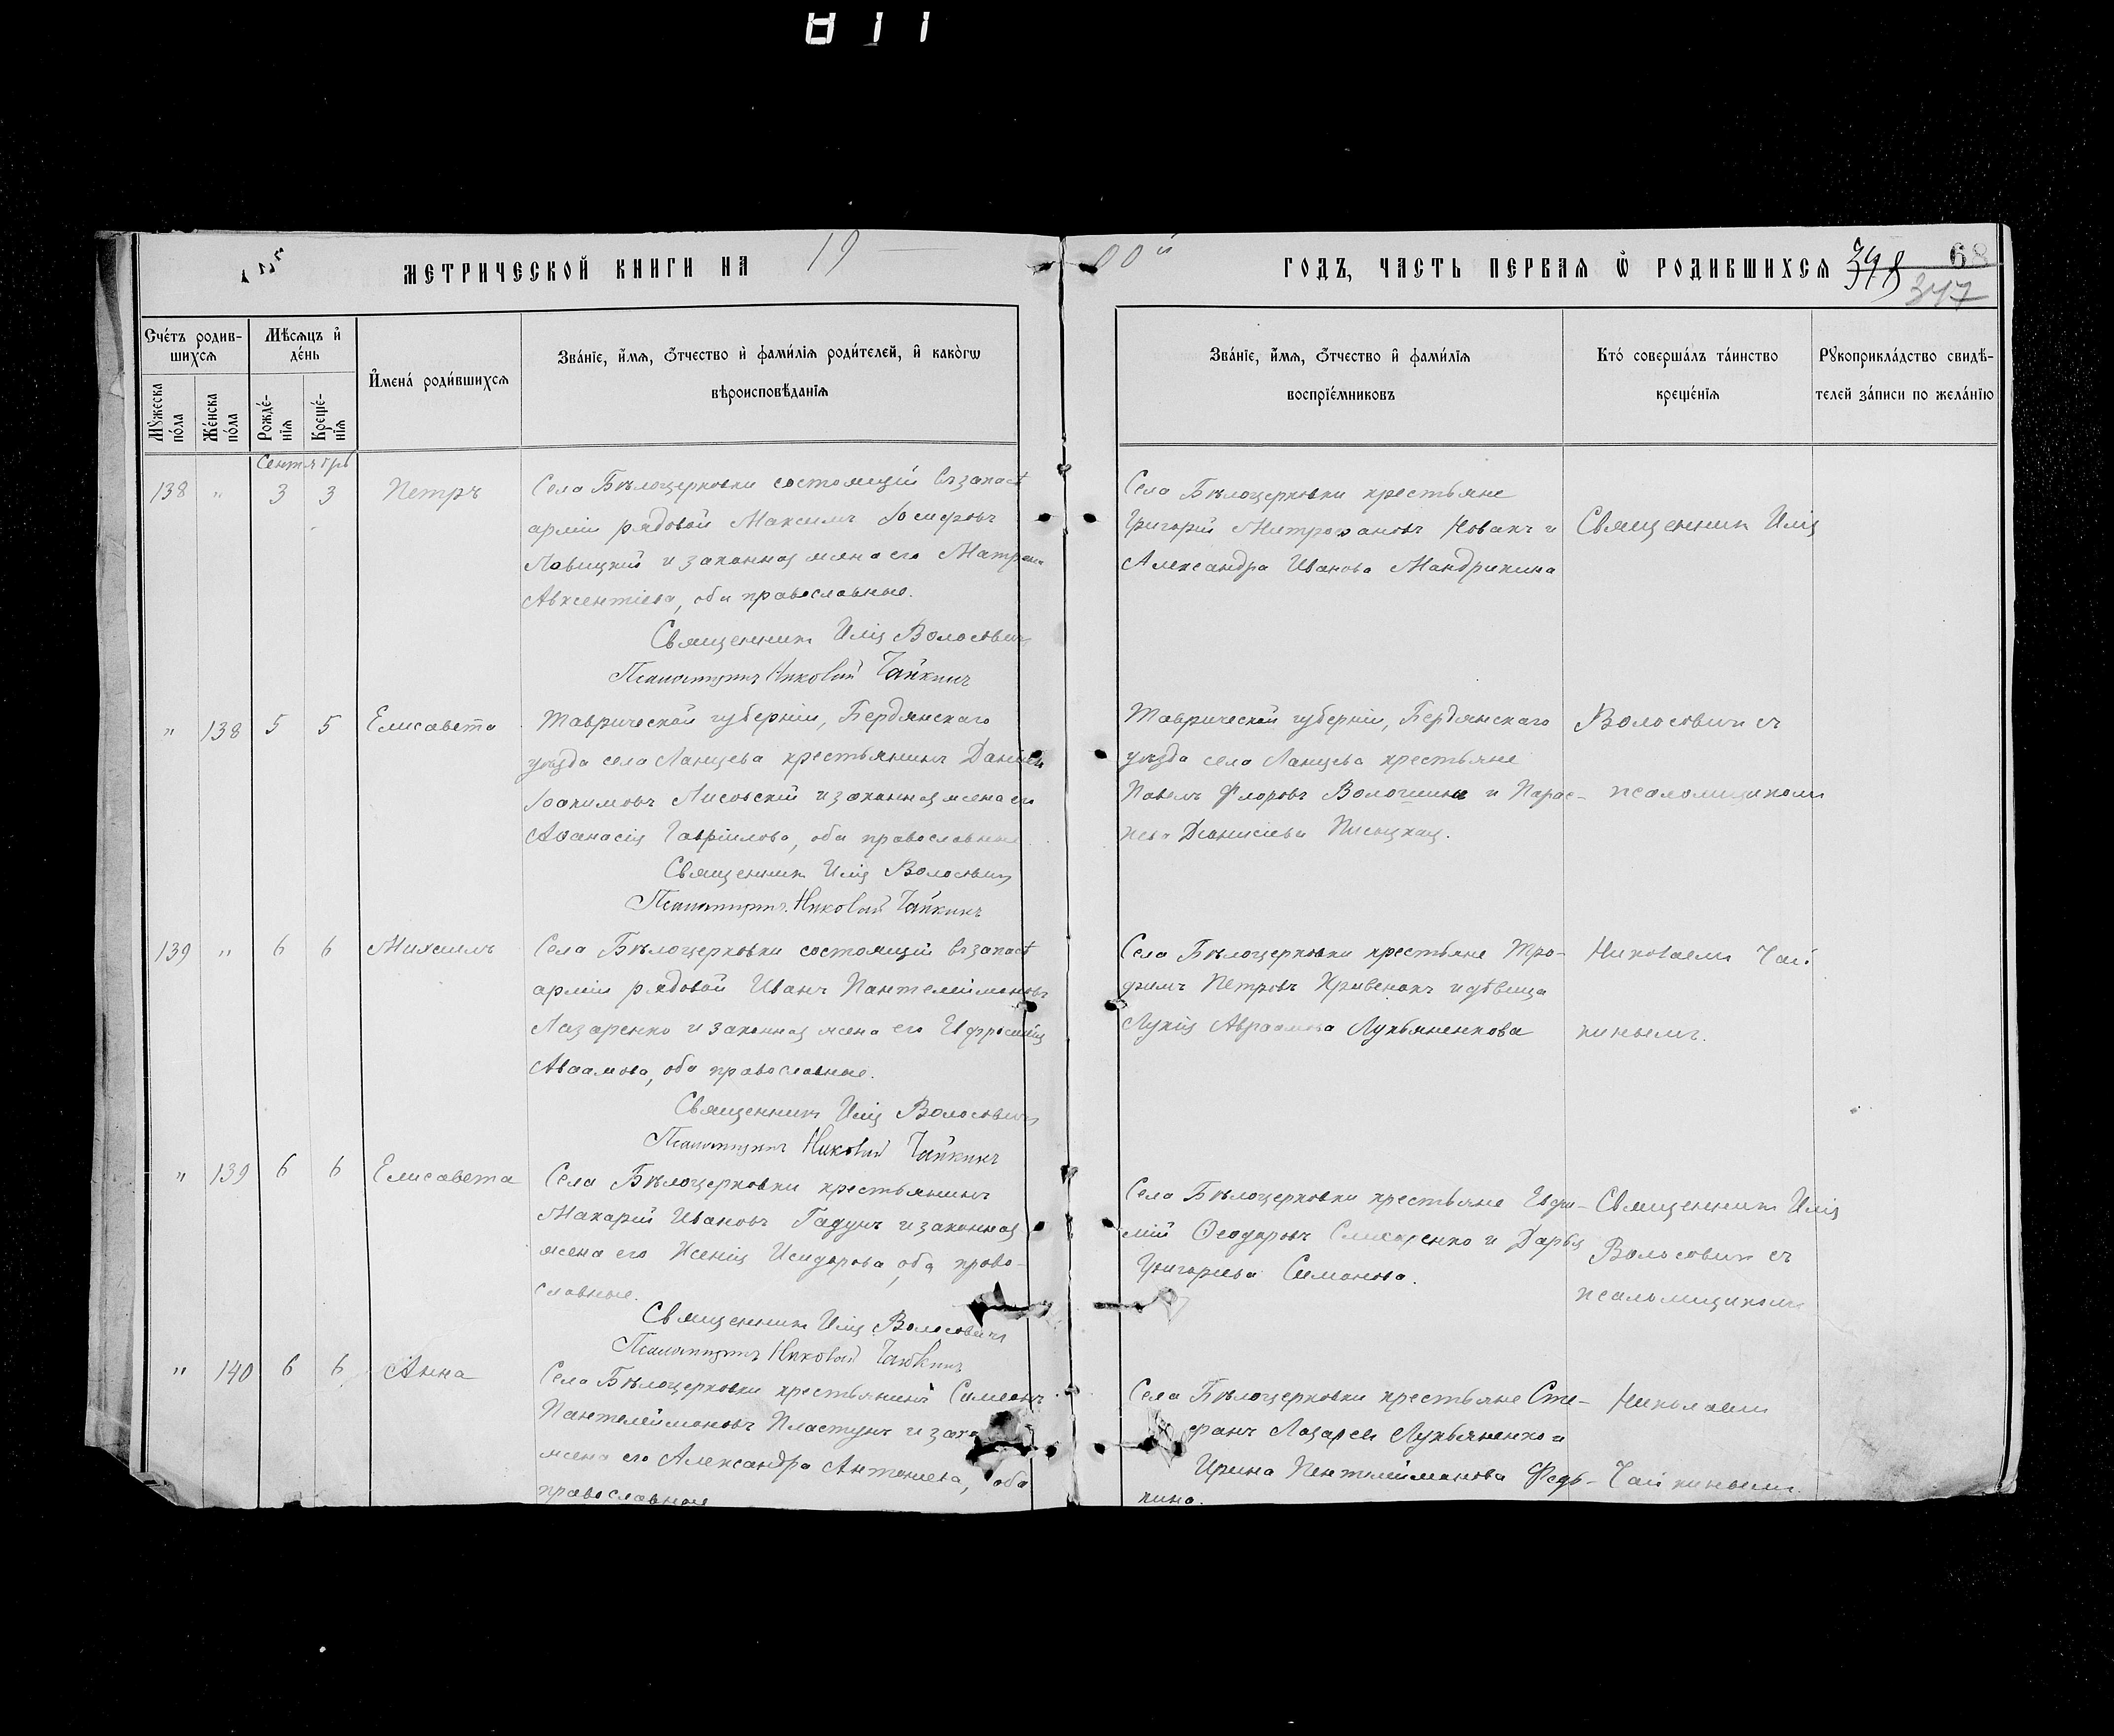 811
МЕТРИЧЕСКОЙ КНИГИ НА 19
00й ГОДЪ, ЧАСТЬ ПЕРВАЯ Ѡ РОДИВШИХСЯ 398 68
347
Сче́тъ родив-
шихся
Мѣсяцъ и҆
де́нь
Мꙋжеска
по́ла
Же́нска
по́ла
Рожде́-
нїѧ
Креще́-
нїѧ
И҆мена́ роди́вшихсѧ
Зва́нїе, и҆́мѧ, ѻ҆́тчество и҆ фами́лїѧ роди́телей, и҆ како́гѡ
вѣроисповѣ́данїѧ
Зва́нїе, и҆́мѧ, ѻ҆́тчество и҆ фами́лїѧ
воспрїе́мниковъ
Кто́ соверша́лъ та́инство
креще́нїѧ
Рꙋкоприкла́дство свидѣ́-
телей за́писи по жела́нїю
Сентябрь
138 " 3 3 Петръ
Села Бѣлоцерковки состоящій въ запасѣ
арміи рядовой Максимъ Іосифовъ
Ловицкій и законная жена его Матрона
Авксентіева, оба православные.
Священникъ Илія Волосевичъ
Псаломщикъ Николай Чайкинъ
Села Бѣлоцерковки крестьяне
Григорій Митрофановъ Новакъ и
Александра Иванова Мандрикина
Священникъ Илія
" 138 5 5 Елисавета
Таврической губерніи, Бердянскаго
уѣзда села Ланцева крестьянинъ Даніилъ
Іоакимовъ Лисовскій и законная жена его
Аѳанасія Гавріилова, оба православные
Священникъ Илія Волосевичъ
Псаломщикъ Николай Чайкинъ
Таврической губерніи, Бердянскаго
уѣзда села Ланцева крестьяне
Павелъ Флоровъ Волошинъ и Парас-
кева Діонисіева
Волосевичъ съ
псаломщикомъ
139 " 6 6 Михаилъ
Села Бѣлоцерковки состоящій въ запасѣ
арміи рядовой Иванъ Пантелеймоновъ
Лазаренко и законная жена его Евфросинія
оба православные.
Священникъ Илія Волосевичъ
Псаломщикъ Николай Чайкинъ
Села Бѣлоцерковки крестьяне Тро-
фимъ Петровъ Кривенокъ и дѣвица
Лукія Авраамова Лукьяненкова
Николаемъ Чай
кинымъ.
" 139 6 6 Елисавета
Села Бѣлоцерковки крестьянинъ
Макарій Ивановъ Гадунъ и законная
жена его Ксенія Исидорова, оба право-
славные.
Священникъ Илія Волосевичъ
Псаломщикъ Николай Чайкинъ
Села Бѣлоцерковки крестьяне Евфи-
мій Ѳеодоровъ и Дарья
Григорьева Симонова.
Священникъ Илія
Волосевичъ съ
псаломщикомъ
" 140 6 6 Анна
Села Бѣлоцерковки крестьянинъ Симеонъ
Пантелеймоновъ Пластунъ и зако
жена его Александра Антоніева, оба
православные
Села Бѣлоцерковки крестьяне Сте-
фанъ Лазарев Лукьяненко и
Ирина Пентелеймонова Федь-
кина.
Николаемъ
Чайкинымъ.